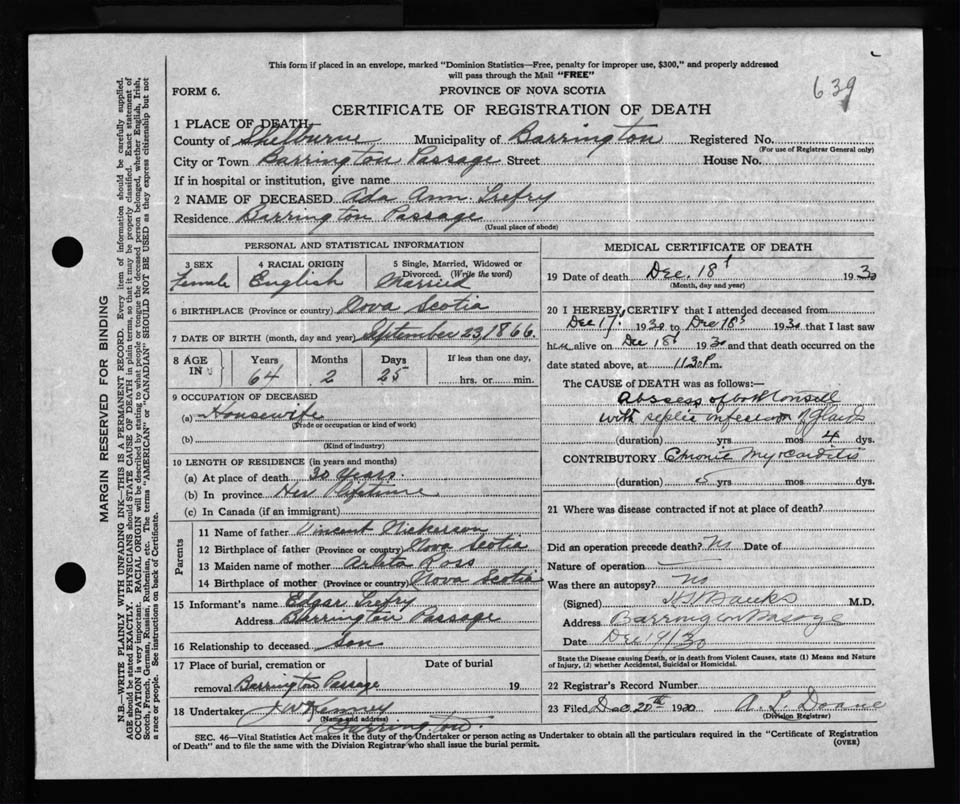 This form if placed in an envelope, marked "Dominion Statistics—Free, penalty for improper use, $300," and properly addressed
will pass through the Mail "FREE"
639
FORM 6.
PROVINCE OF NOVA SCOTIA
CERTIFICATE OF REGISTRATION OF DEATH
1 PLACE OF DEATH
County of Shelburne Municipality of Barrington Registered No.
(For use of Registrar General only)
City or Town Barrington Passage Street House No.
If in hospital or institution, give name
2 NAME OF DECEASED Ada Ann Trefry
Residence Barrington Passage
(Usual place of abode)
PERSONAL AND STATISTICAL INFORMATION
3 SEX 4 RACIAL ORIGIN 5 Single, Married, Widowed or
Divorced. (Write the word)
Female English Married
6 BIRTHPLACE (Province or country) Nova Scotia
7 DATE OF BIRTH (month, day and year) September 23, 1866.
8 AGE IN Years Months Days If less than one day,
64 2 25 hrs. or min.
9 OCCUPATION OF DECEASED
(a) Housewife
(Trade or occupation or kind of work)
(b)
(Kind of industry)
10 LENGTH OF RESIDENCE (in years and months)
(a) At place of death 30 Years.
(b) In province Her Lifetime
(c) In Canada (if an immigrant)
Parents
11 Name of father Vincent Nickerson
12 Birthplace of father (Province or country) Nova Scotia
13 Maiden name of mother Ross
14 Birthplace of mother (Province or country) Nova Scotia
15 Informant's name Edgar Trefry
Address Barrington Passage
16 Relationship to deceased Son
17 Place of burial, cremation or Date of burial
removal Barrington Passage 19
18 Undertaker Kenney
(Name and address)
Barrington.
MEDICAL CERTIFICATE OF DEATH
19 Date of death Dec. 18 1930
(Month, day and year)
20 I HEREBY CERTIFY that I attended deceased from
Dec 17 1930 to Dec 18 1930 that I last saw
alive on Dec 18 1930 and that death occurred on the
date stated above, at 1130 P m.
The CAUSE of DEATH was as follows:—
Abscess of both tonsils
with septic infection of glands
(duration) yrs mos 4 dys.
CONTRIBUTORY Chronic Myocarditis
(duration) 5 yrs mos dys.
21 Where was disease contracted if not at place of death?
Did an operation precede death? No Date of
Nature of operation
Was there an autopsy? No
(Signed) Banks M.D.
Address Barrington Passage
Date Dec 19/30
State the Disease causing Death, or in death from Violent Causes, state (1) Means and Nature
of Injury, (2) whether Accidental, Suicidal or Homicidal.
22 Registrar's Record Number
23 Filed Dec 20th 1930 A. L. Doane
(Division Registrar)
SEC. 46—Vital Statistics Act makes it the duty of the Undertaker or person acting as Undertaker to obtain all the particulars required in the "Certificate of Registration
of Death" and to file the same with the Division Registrar who shall issue the burial permit.
(OVER)
MARGIN RESERVED FOR BINDING
N.B.—WRITE PLAINLY WITH UNFADING INK—THIS IS A PERMANENT RECORD. Every item of information should be carefully supplied.
AGE should be stated EXACTLY. PHYSICIANS should STATE CAUSE OF DEATH in plain terms, so that it may be properly classified. Exact statement of
OCCUPATION is very important. RACIAL ORIGIN will be described by stating to what people or tongue the deceased person belonged, whether English, Irish,
Scotch, French, German, Russian, Ruthenian, etc. The terms "AMERICAN" or "CANADIAN" SHOULD NOT BE USED as they express citizenship but not
a race or people. See instructions on back of Certificate.